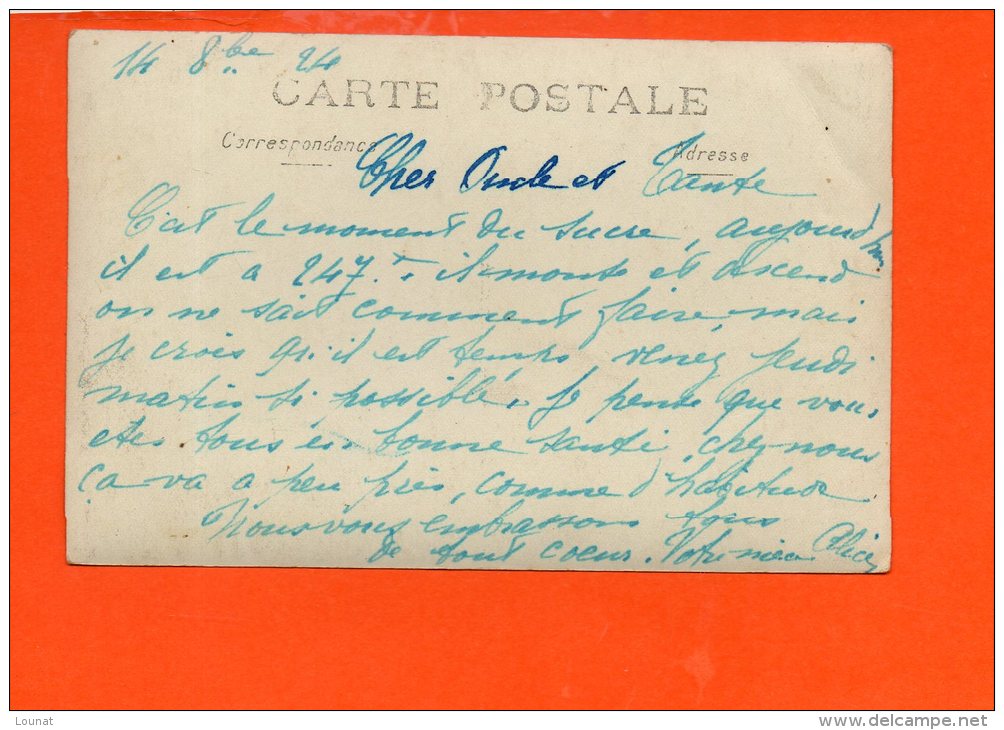 14 8bre 24
CARTE POSTALE
Correspondance Adresse
Cher Oncle et Tante
C'est le moment du sucre, aujourd'hui
il est a 247 il monte et descend
on ne sait comment faire, mais
je crois qu'il est temps, venez jeudi
matin si possible. Je pense que vous
etes tous en bonne santé, chez nous
ça va a peu près, comme d'habitude
Nous vous embrassons tous
de tout coeur. Votre nièce Alice
Lounat
www.delcampe.net